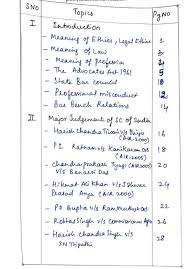 SNo Topics PgNo
I Introduction
- Meaning of Ethics, Legal Ethics 1
- Meaning of Law 3
- Meaning of profession 4
- The Advocates Act 1961 5
- State Bar council 10
- Professional misconduct 12
- Bar Bench Relations 14
II Major Judgement of SC of India
- Harish Chandra Tiwari v/s Baiju 16
(AIR-2002)
- P.I. Ratnam v/s Kanikaram
(AIR 2000) 18
- Chandra prakash Tyagi (AIR 2000) 20
v/s Benarsi Das
- Hikmat Ali Khan v/s Ishwar 24
Prasad Arya
- PD Gupta v/s Ram Murti 22
- Robhas Singh v/s
- Harish Chandra Singh v/s 28
S N Tripathi